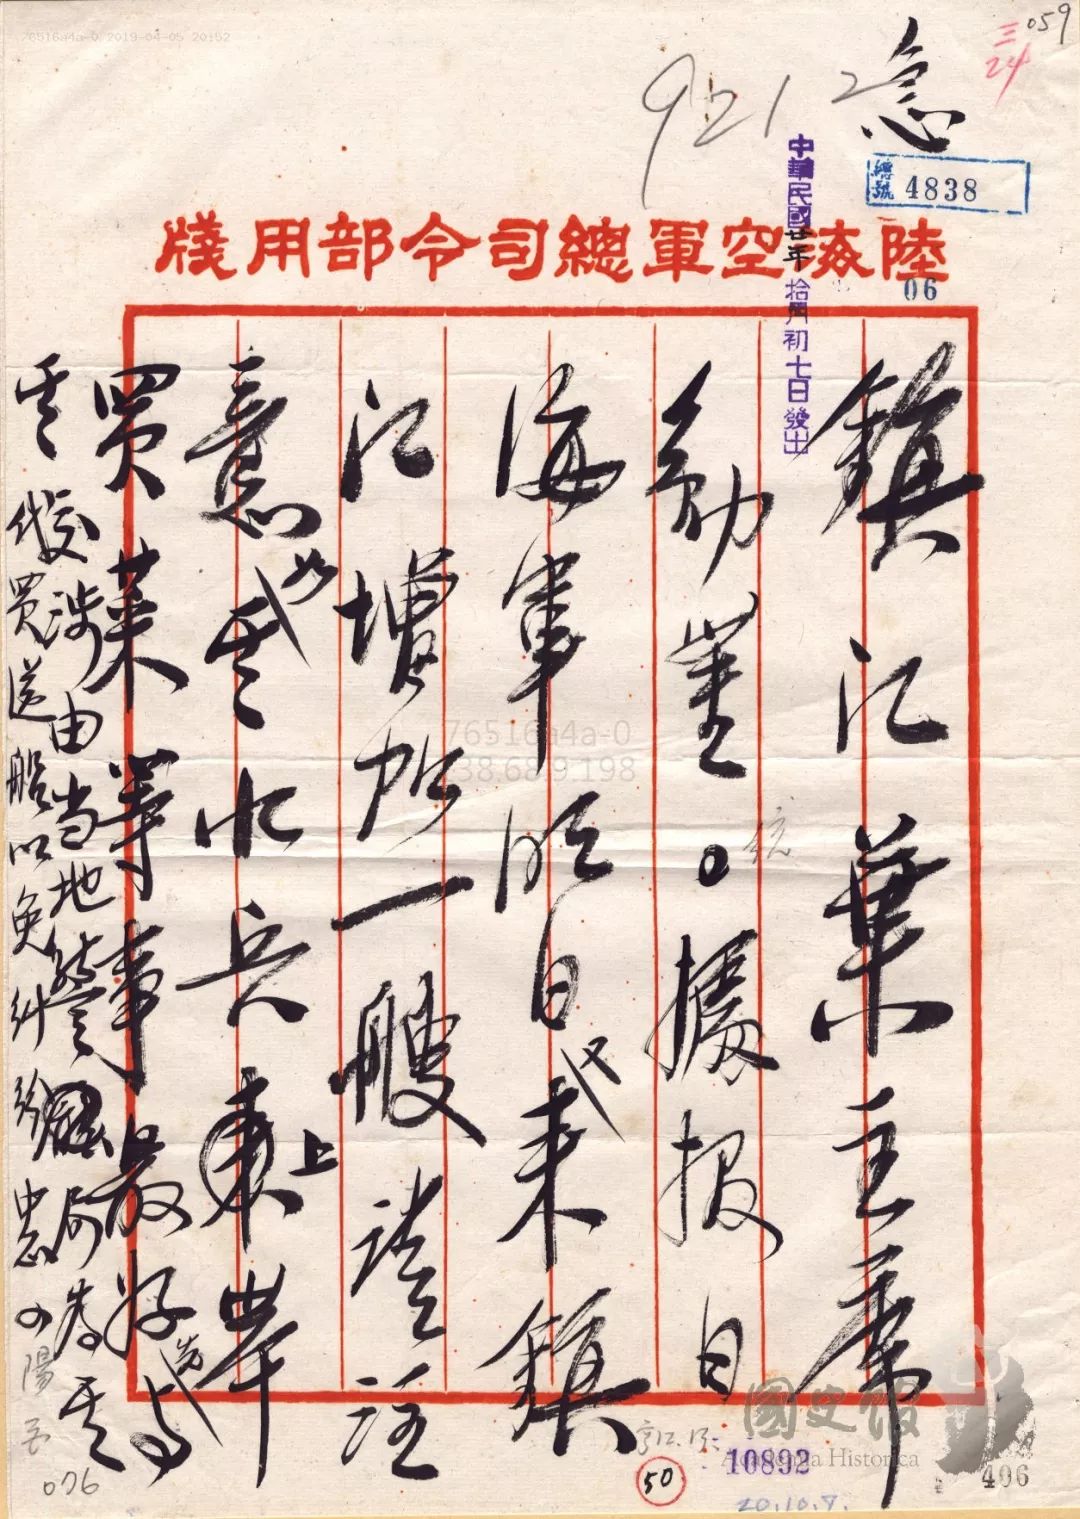 059
三
24
急
9212
總號 4838
中華民國廿年拾月初七日發出
陸海空軍總司令部用牋
06
鎮江葉主席
勛鑒。據報日
海軍明日又來鎮
江增加一艘請注
意如其水兵上岸
買菜等事最好先與
其交涉由当地警局為其
代買送船以免糾紛中正陽
076
50
10892
20.10.7.
406
國史館
Academia Historica
76516a4a-0 2019-04-05 20:52
76516a4a-0
238.68.9.198